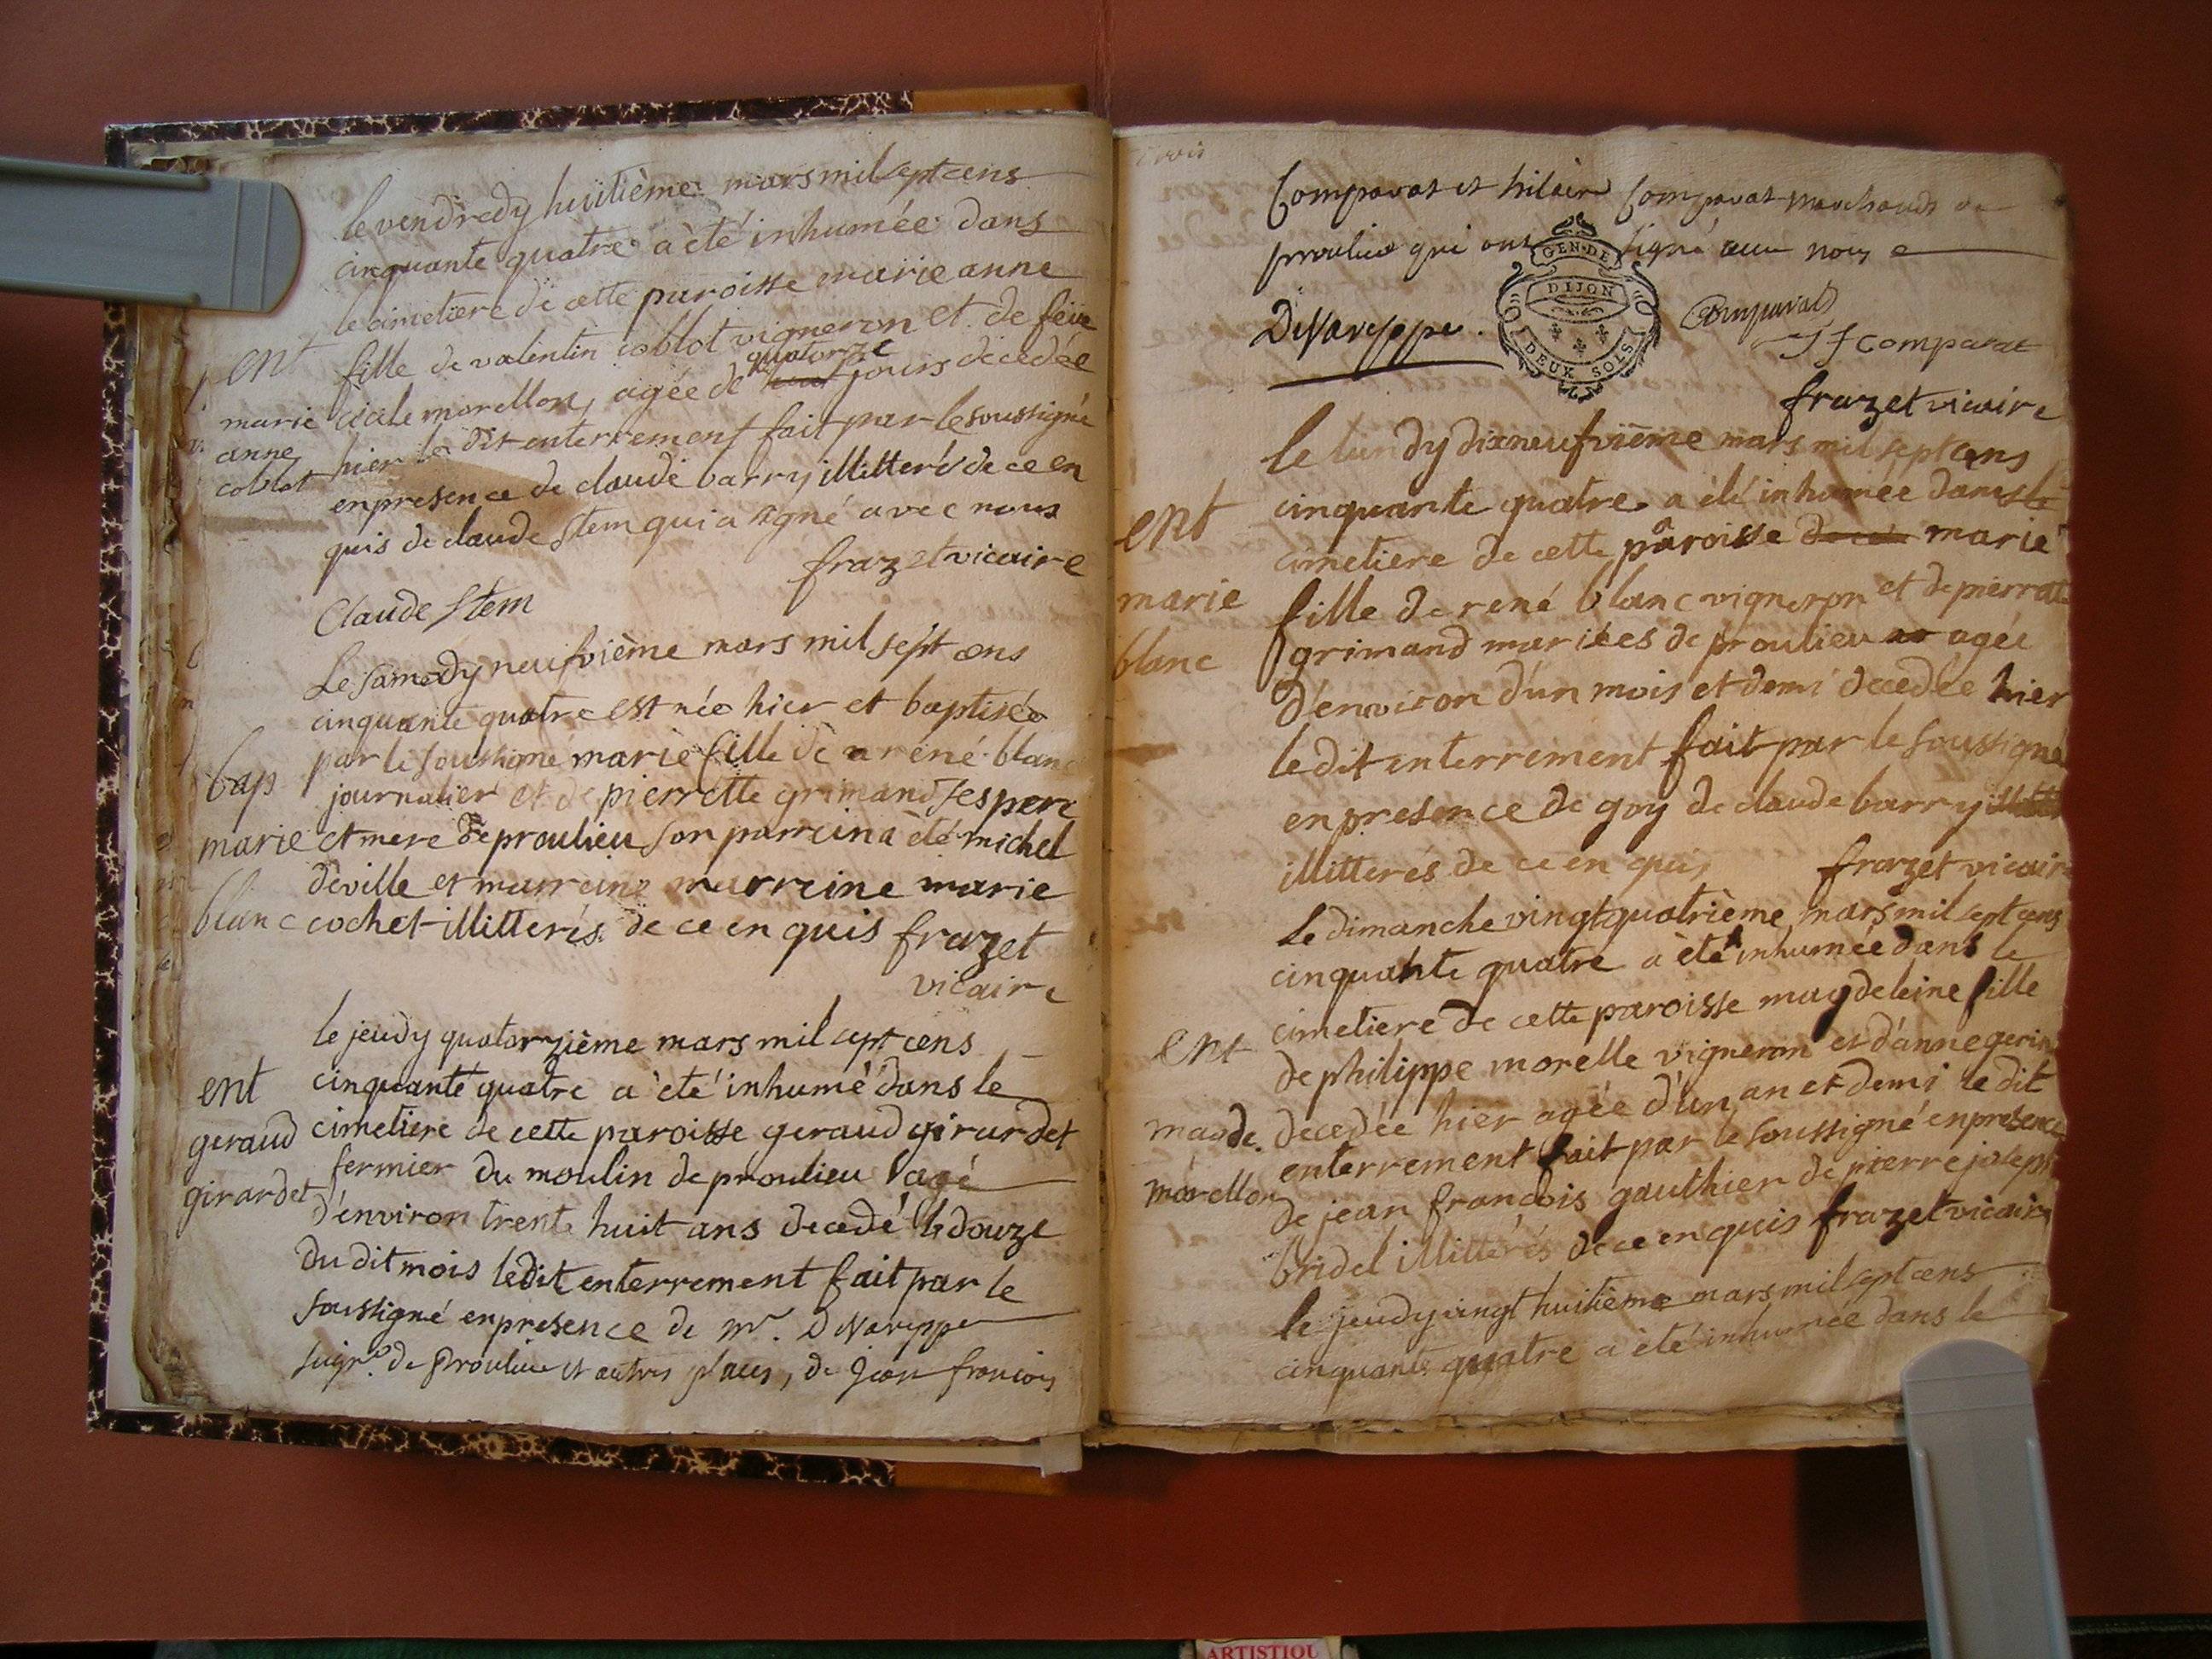 le vendredy huitième mars mil sept cens
cinquante quatre a èté inhumée dans
le cimetiere de cette paroisse marie anne
fille de valentin coblot vigneron et de
quatorze
ent
marie
anne
coblot
morellon, agée de jours decedée
hier le dit enterrement fait par le soussigné
en presence de claude barry illitteré de ce en
quis de claude stem qui a signé avec nous
frazet vicaire
Claude Stem
Le samedy neufvième mars mil sept cens
cinquante quatre est née hier et baptisée
par le soussigné marie fille de rené blanc
journalier et de pierrette grimand ses pere
et mere de proulieu son parrein a èté michel
deville et marreine marreine marie
cochet illitterés de ce en quis frazet
vicaire
bap
marie
blanc
le jeudy quatorzième mars mil sept cens
cinquante quatre a èté inhumé dans le
cimetiere de cette paroisse geraud girardet
fermier du moulin de proulieu agé
d'environ trente huit ans decedé le douze
du dit mois le dit enterrement fait par le
soussigné en presence de mr. DeVareppe
seigr. de Proulieu et autres places, de Jean françois
ent
geraud
girardet
Comparat et hilaire Comparat marchands de
proulieu qui ont signé avec nous
GEN. DE
DIJON
DEUX SOLS
DeVareppe.
Comparat
J f comparat
frazet vicaire
le lundy dixneufvième mars mil sept cens
cinquante quatre a èté inhumée dans le
cimetiere de cette paroisse marie
fille de rené blanc vigneron et de pierrette
grimand mariées de proulieu agée
d'environ d'un mois et demi decedée hier
le dit enterrement fait par le soussigné
en presence de goy de claude barry
illitterés de ce en quis frazet vicaire
ent
marie
blanc
Le dimanche vingt quatrième mars mil sept cens
cinquante quatre a èté inhumée dans le
cimetiere de cette paroisse magdeleine fille
de philippe morelle vigneron et d'anne gerin
decedée hier agée d'un an et demi le dit
enterrement fait par le soussigné en presence
de jean françois gauthier de pierre joseph
bridel illitterés de ce en quis frazet vicaire
ent
magde.
morellon
le jeudy vingt huitième mars mil sept cens
cinquante quatre a èté inhumée dans le
ARTISTIQU